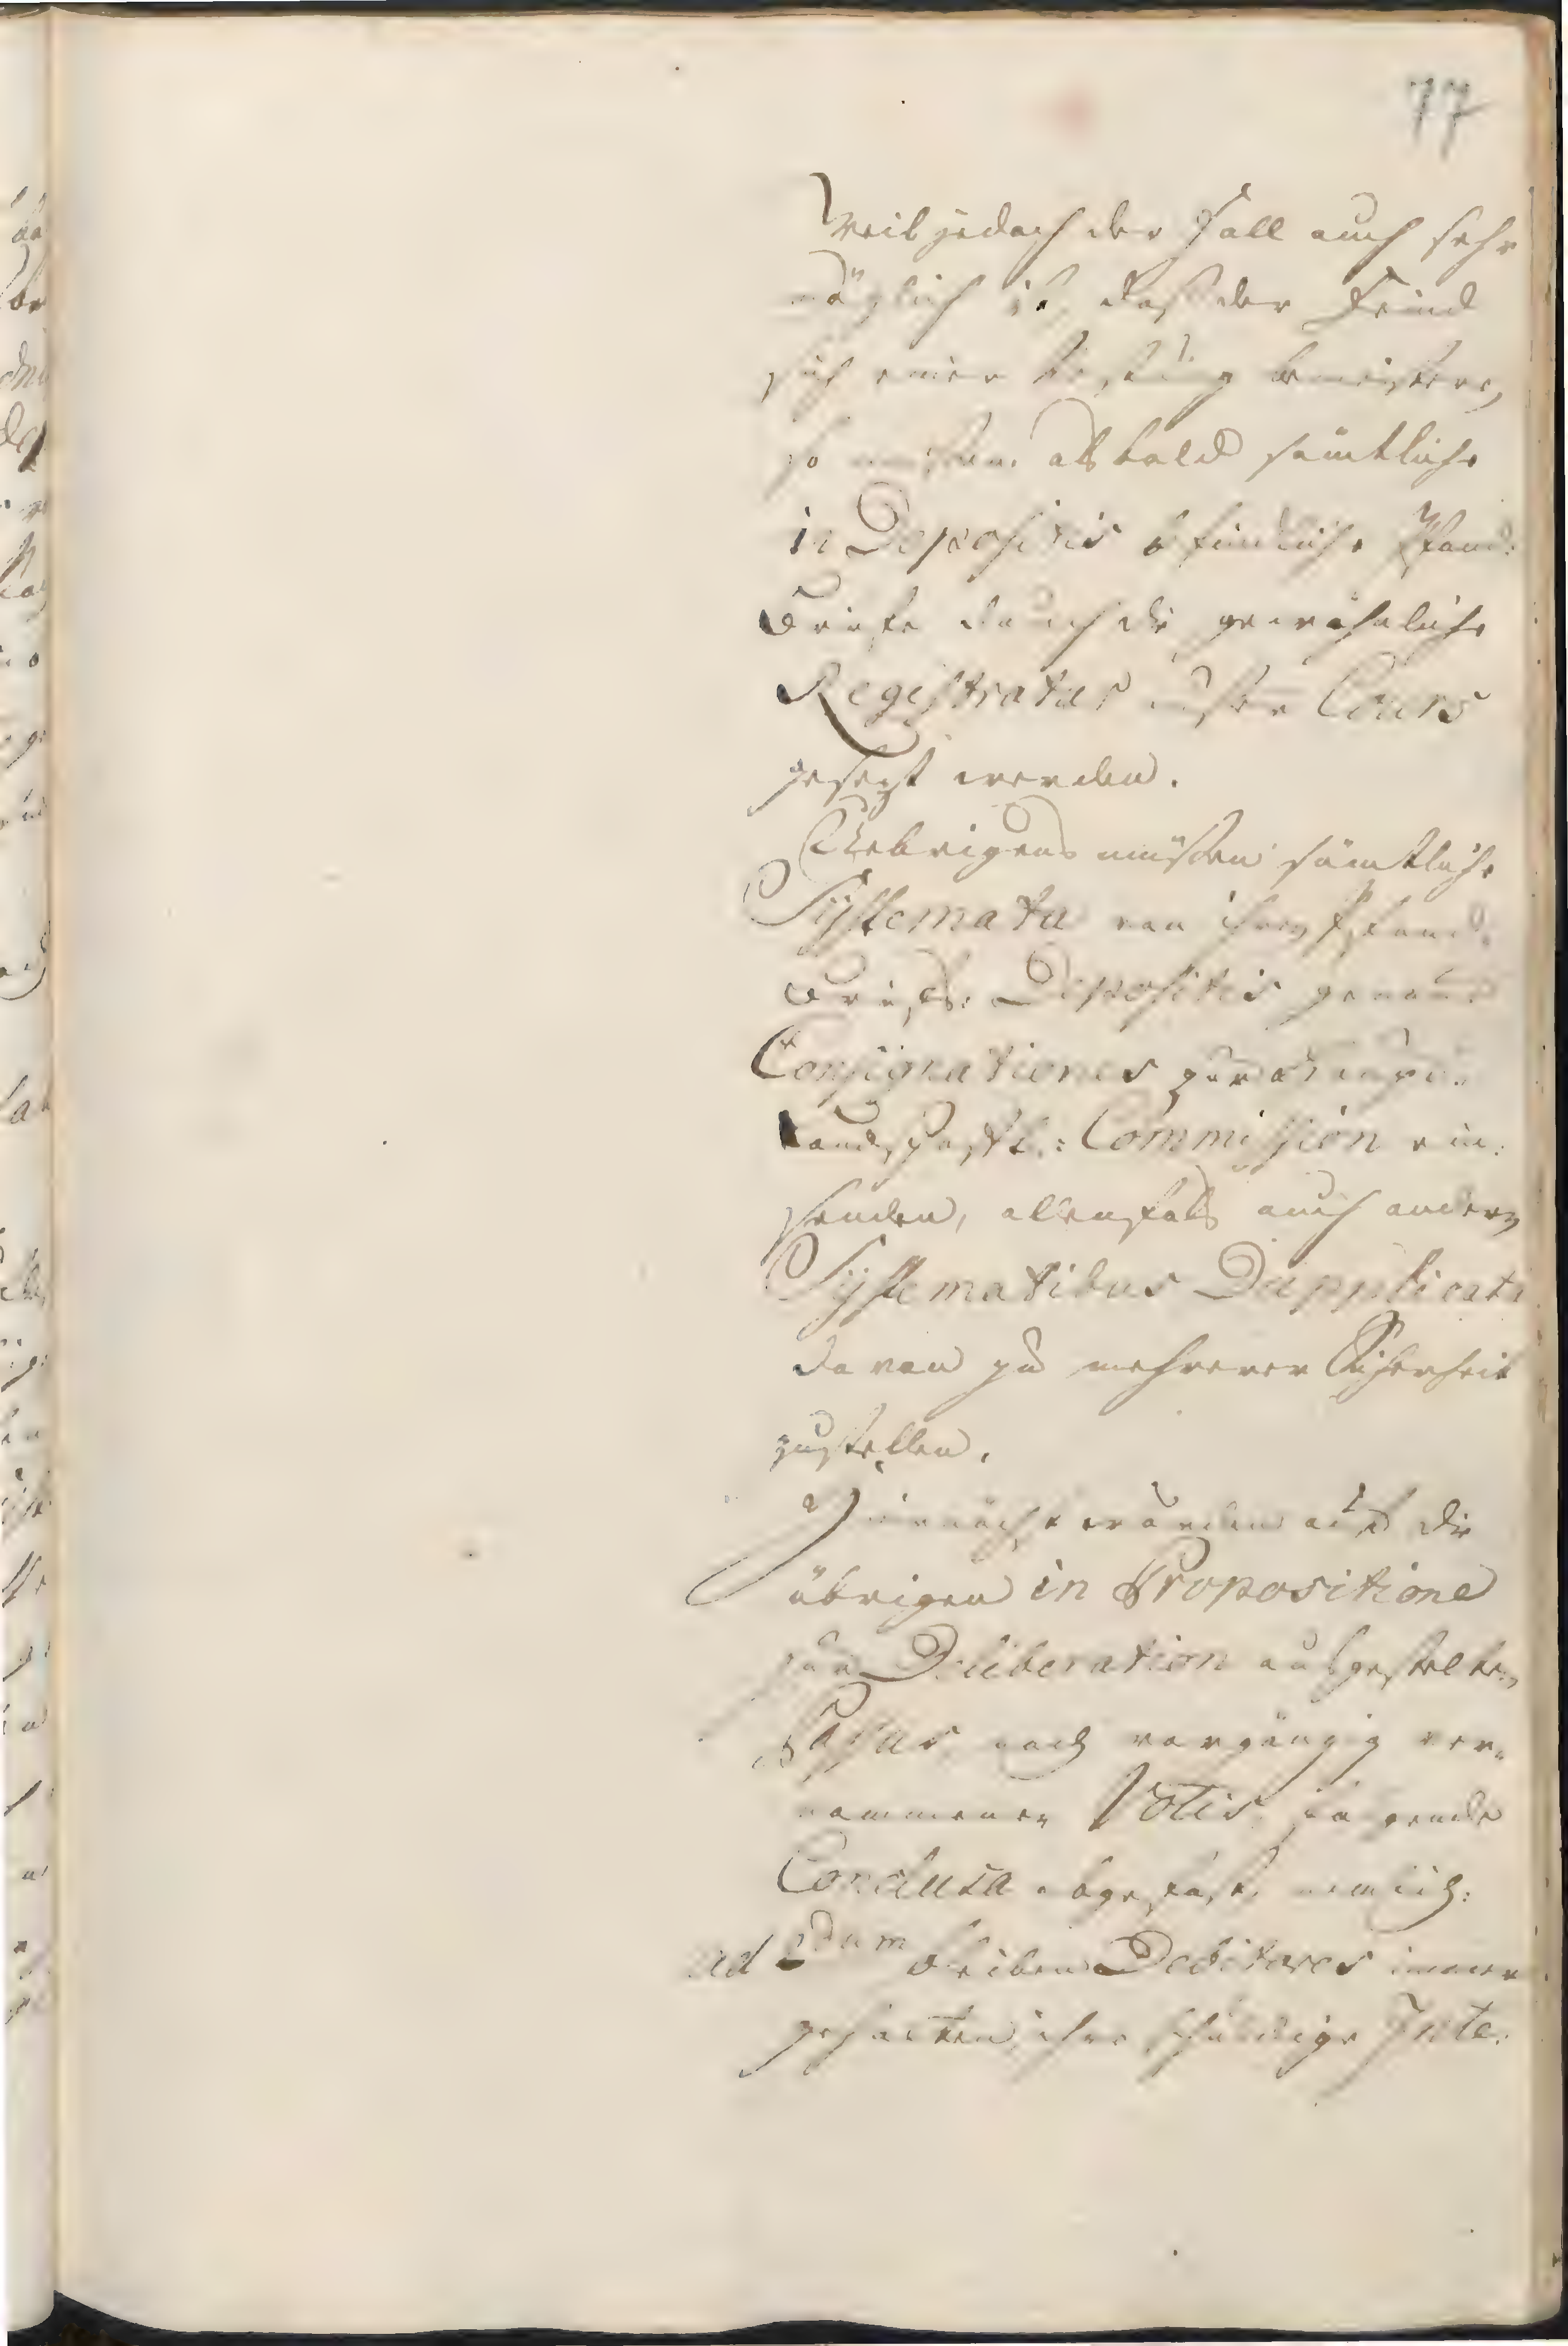 77
Weil jedoch der Fall auch sehr
möglich ist, daß der Feind
sich einer Festung bemeistere,
so müsten alsbald sämtliche
in Depositis befindliche Pfand-
briefe durch die gewöhnliche
Registratur außer Cours
gesezt werden.
Uebrigens müsten sämtliche
Systemata von ihren Pfand-
briefs-Depositis genaue
Consignationes zur Haupt-
Landschafts-Commission ein-
senden, allenfals auch andern
Systematibus Dupplicate
davon zu mehrerer Sicherheit
zustellen.
Hiernächst würden auf die
übrigen in Propositione
zur Deliberation ausgestelten
Passus nach vorgängig ver-
nommenen Votis folgende
Conclusa abgefast, nemlich:
ad 2dum bleiben Debitores immer
gehalten ihre schuldige Inte-